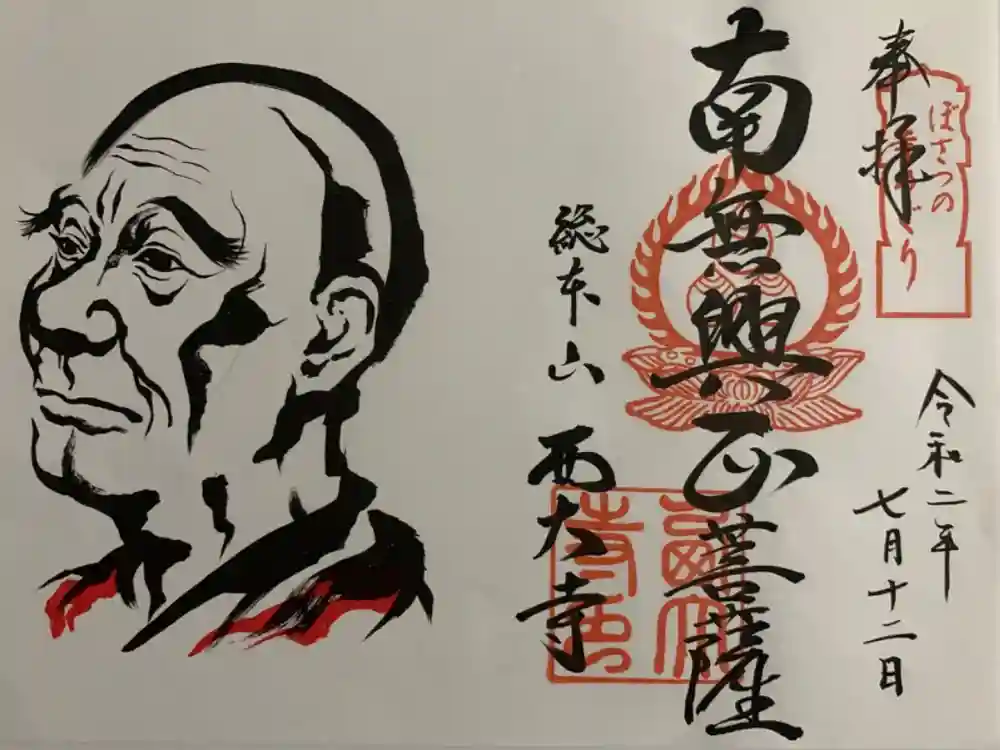 奉拝
ぼさつの
令和二年
七月十二日
南無興正菩薩
総本山
西大寺